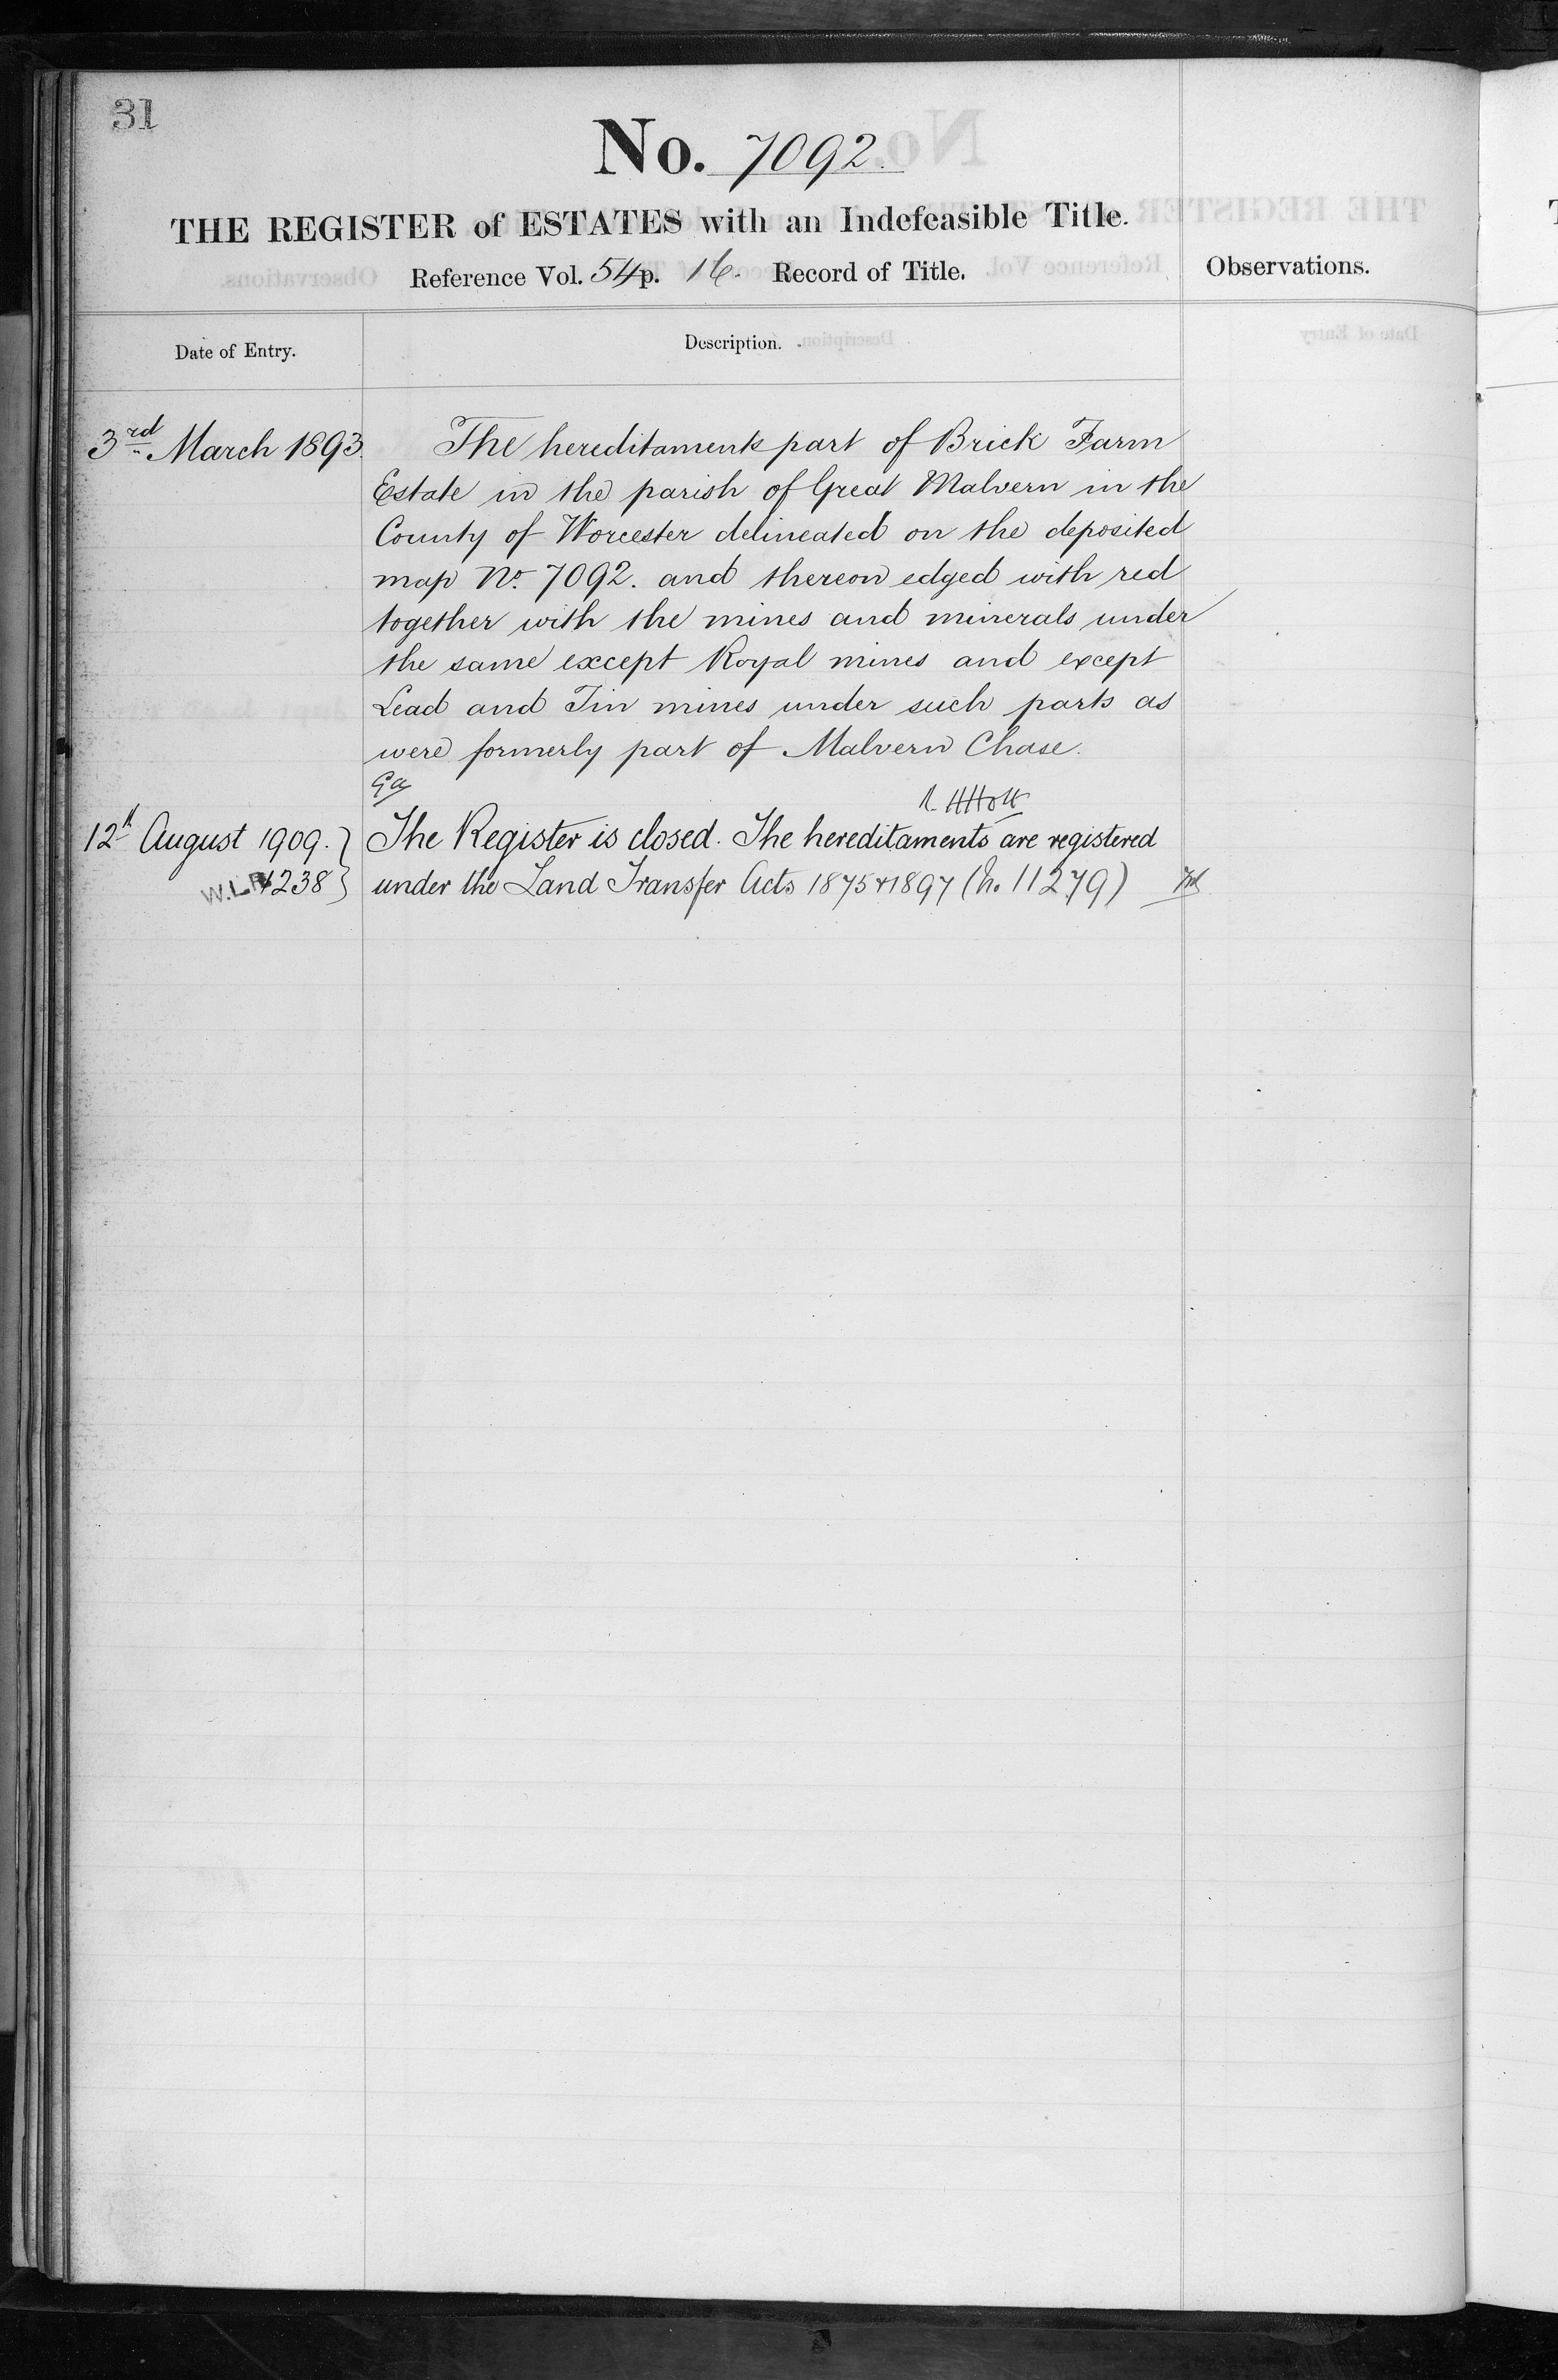 31
No. 7092.
THE REGISTER of ESTATES with an Indefeasible Title.
Reference Vol. 54 p. 16. Record of Title.
Observations.
Date of Entry.
Description.
3rd March 1893.
The hereditaments part of Brick Farm
Estate in the parish of Great Malvern in the
County of Worcester delineated on the deposited
map No. 7092. and thereon edged with red
together with the mines and minerals under
the same except Royal mines and except
Lead and Tin mines under such parts as
were formerly part of Malvern Chase.
R. H Holt
12th August 1909.
The Register is closed. The hereditaments are registered
W.L.R 4238
under the Land Transfer Acts 1875 & 1897 (No. 11279)